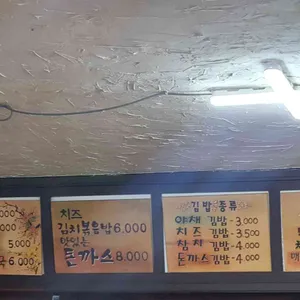 000
000
5000
6.000
치즈
김치볶음밥 6.000
맛있는
돈까스 8.000
김밥종류
야채 김밥-3.000
치즈 김밥-3.500
참치 김밥-4.000
돈까스김밥-4.000